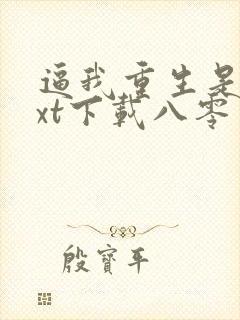 逼我重生是
xt下載八零
殷寶平